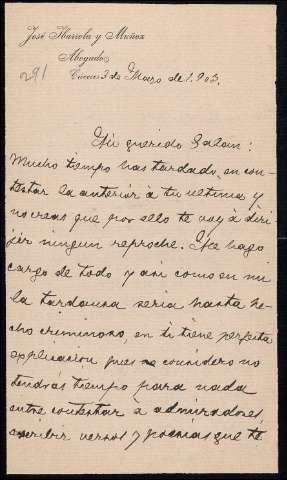 José Ibarrola y Muñoz
Abogado
291
Cáceres 3 de Marzo de 1.903.
Mi querido Galan:
Mucho tiempo has tardado en con-
testar la anterior á tu ultima y
no creas que por ello te voy á diri
jir ningun reproche. Me hago
cargo de todo y asi como en mi
la tardanza seria hasta he-
cho criminoso, en ti tiene perfecta
esplicacion pues considero no
tendrás tiempo para nada
entre contestar a admiradores,
escribir versos y poesias que te